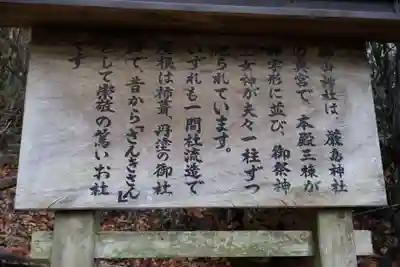 御山神社は、厳島神社
の奥宮で、本殿三棟が
品字形に並び、御祭神
三女神が夫々一柱ずつ
祀られています。
いずれも一間社流造で
屋根は柿葺、丹塗の御社
殿で、昔から「ざんきさん」
として崇敬の篤いお社
です